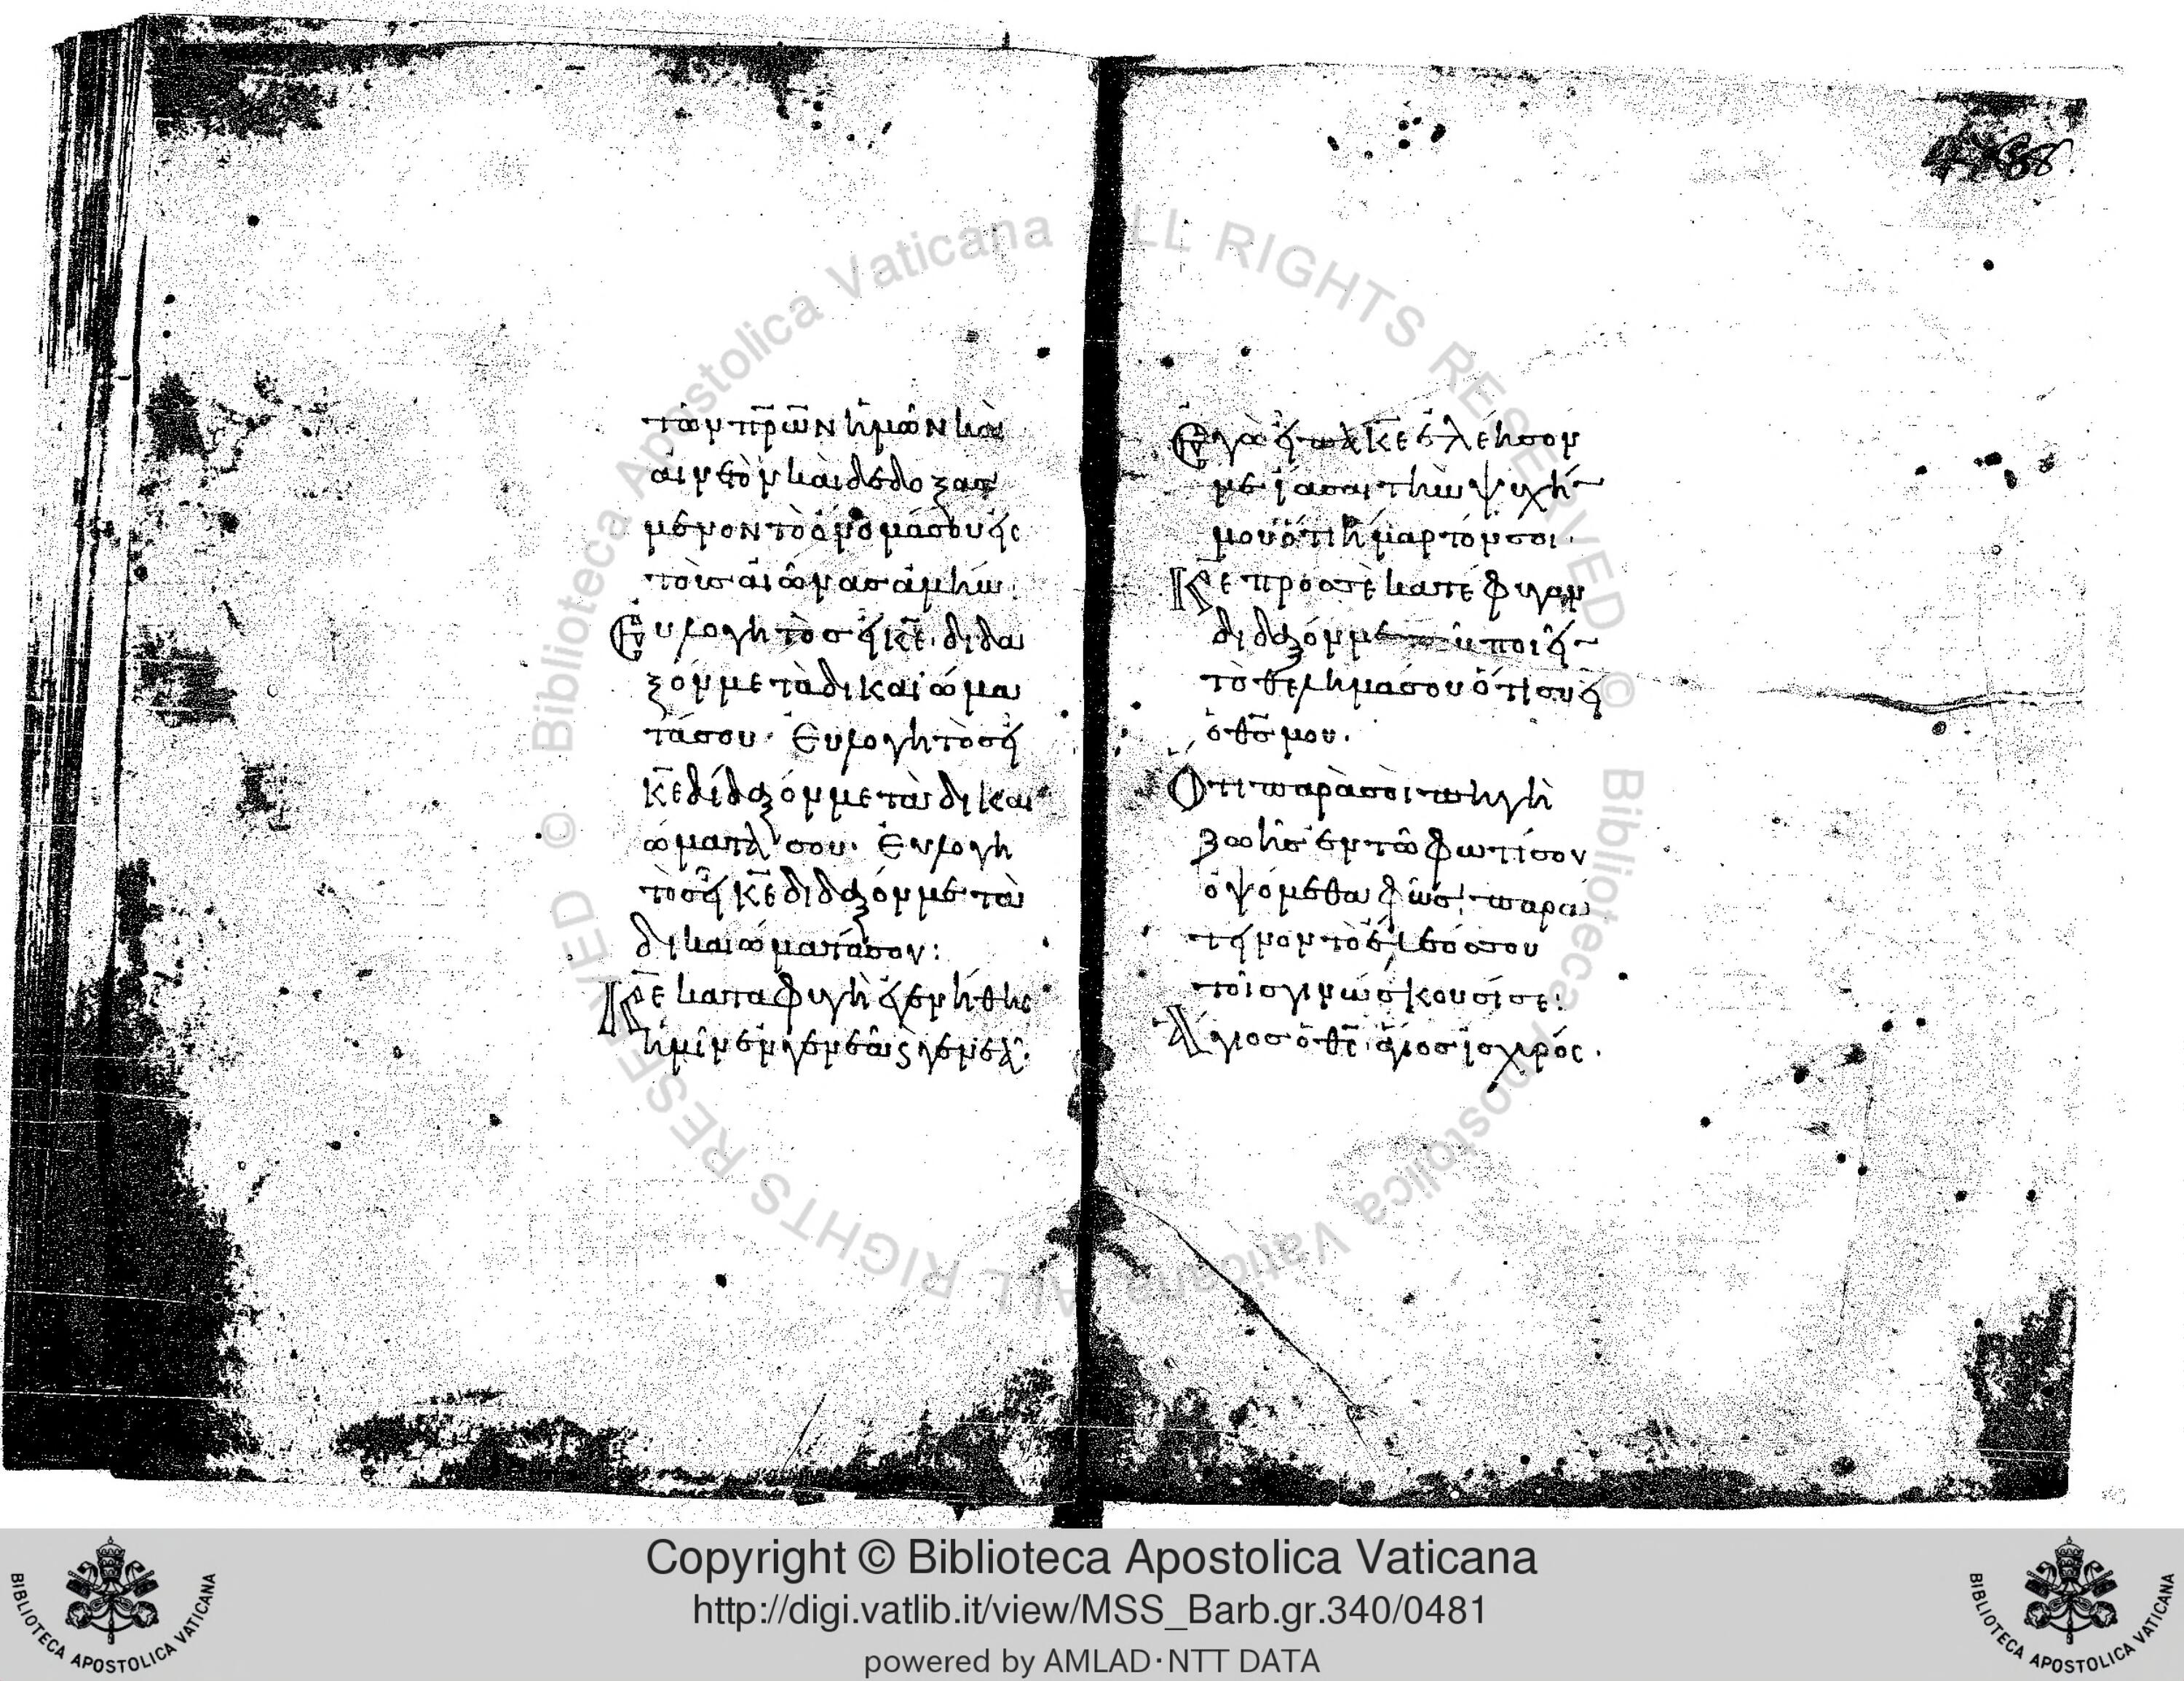 τὼν π̅ρ̅ω̅ν ἡμῶν καὶ
αἰνετὸν καὶ δεδοξασ
μένον τὸ ὄνομά σου εἰς
τοὺσ αἰῶνασ ἀμήν:
Ευλογητὸσ εἶ κ̅ε̅ διδα
ξόν με τὰ δικαιώμα
τά σου· Ευλογητὸσ εἶ
κ̅ε̅ δίδαξόν με τὰ δικαι
ώματά σου· Ευλογη
τὸσ εἶ κ̅ε̅ δίδαξόν με τὰ
δικαιώματά σου:
Κ̅ε̅ καταφυγὴ ἐγενήθης
ἡμῖν ἐν γενεᾶ ϛ γενεᾶ·
Εγὼ εἶπα κ̅ε̅ ἐλέησον
με ἴασαι τὴν ψυχή
μου ὅτι ἥμαρτόν σοι·
Κ̅ε̅ πρὸσ σὲ κατέφυγον
διδαξόν με τοῦ ποιεῖ
τὸ θελημά σου ὅτι συ εἶ
ὁ θ̅σ̅ μου.
Οτι παρὰ σοὶ πηγὴ
ζωῆσ ἐν τῶ φωτί σου
ὀψόμεθα φῶσ· παρα
τεινον τὸ ἔλεόσ σου
τοῖσ γινώσκουσί σε:
Αγιοσ ὁ θ̅ς̅ ἅγιοσ ἰσχυρός.
Copyright © Biblioteca Apostolica Vaticana
http://digi.vatlib.it/view/MSS_Barb.gr.340/0481
powered by AMLAD·NTT DATA
BIBLIOTECA APOSTOLICA VATICANA
BIBLIOTECA APOSTOLICA VATICANA